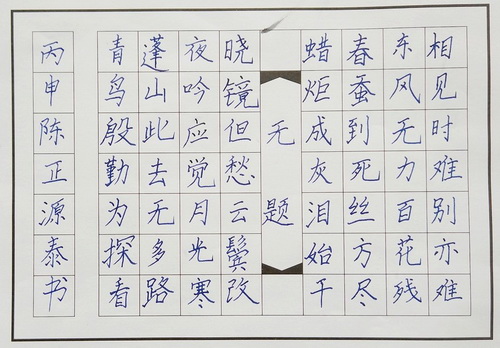 相见时难别亦难
东风无力百花残
春蚕到死丝方尽
蜡炬成灰泪始干
无题
晓镜但愁云鬓改
夜吟应觉月光寒
蓬山此去无多路
青鸟殷勤为探看
丙申陈正源泰书